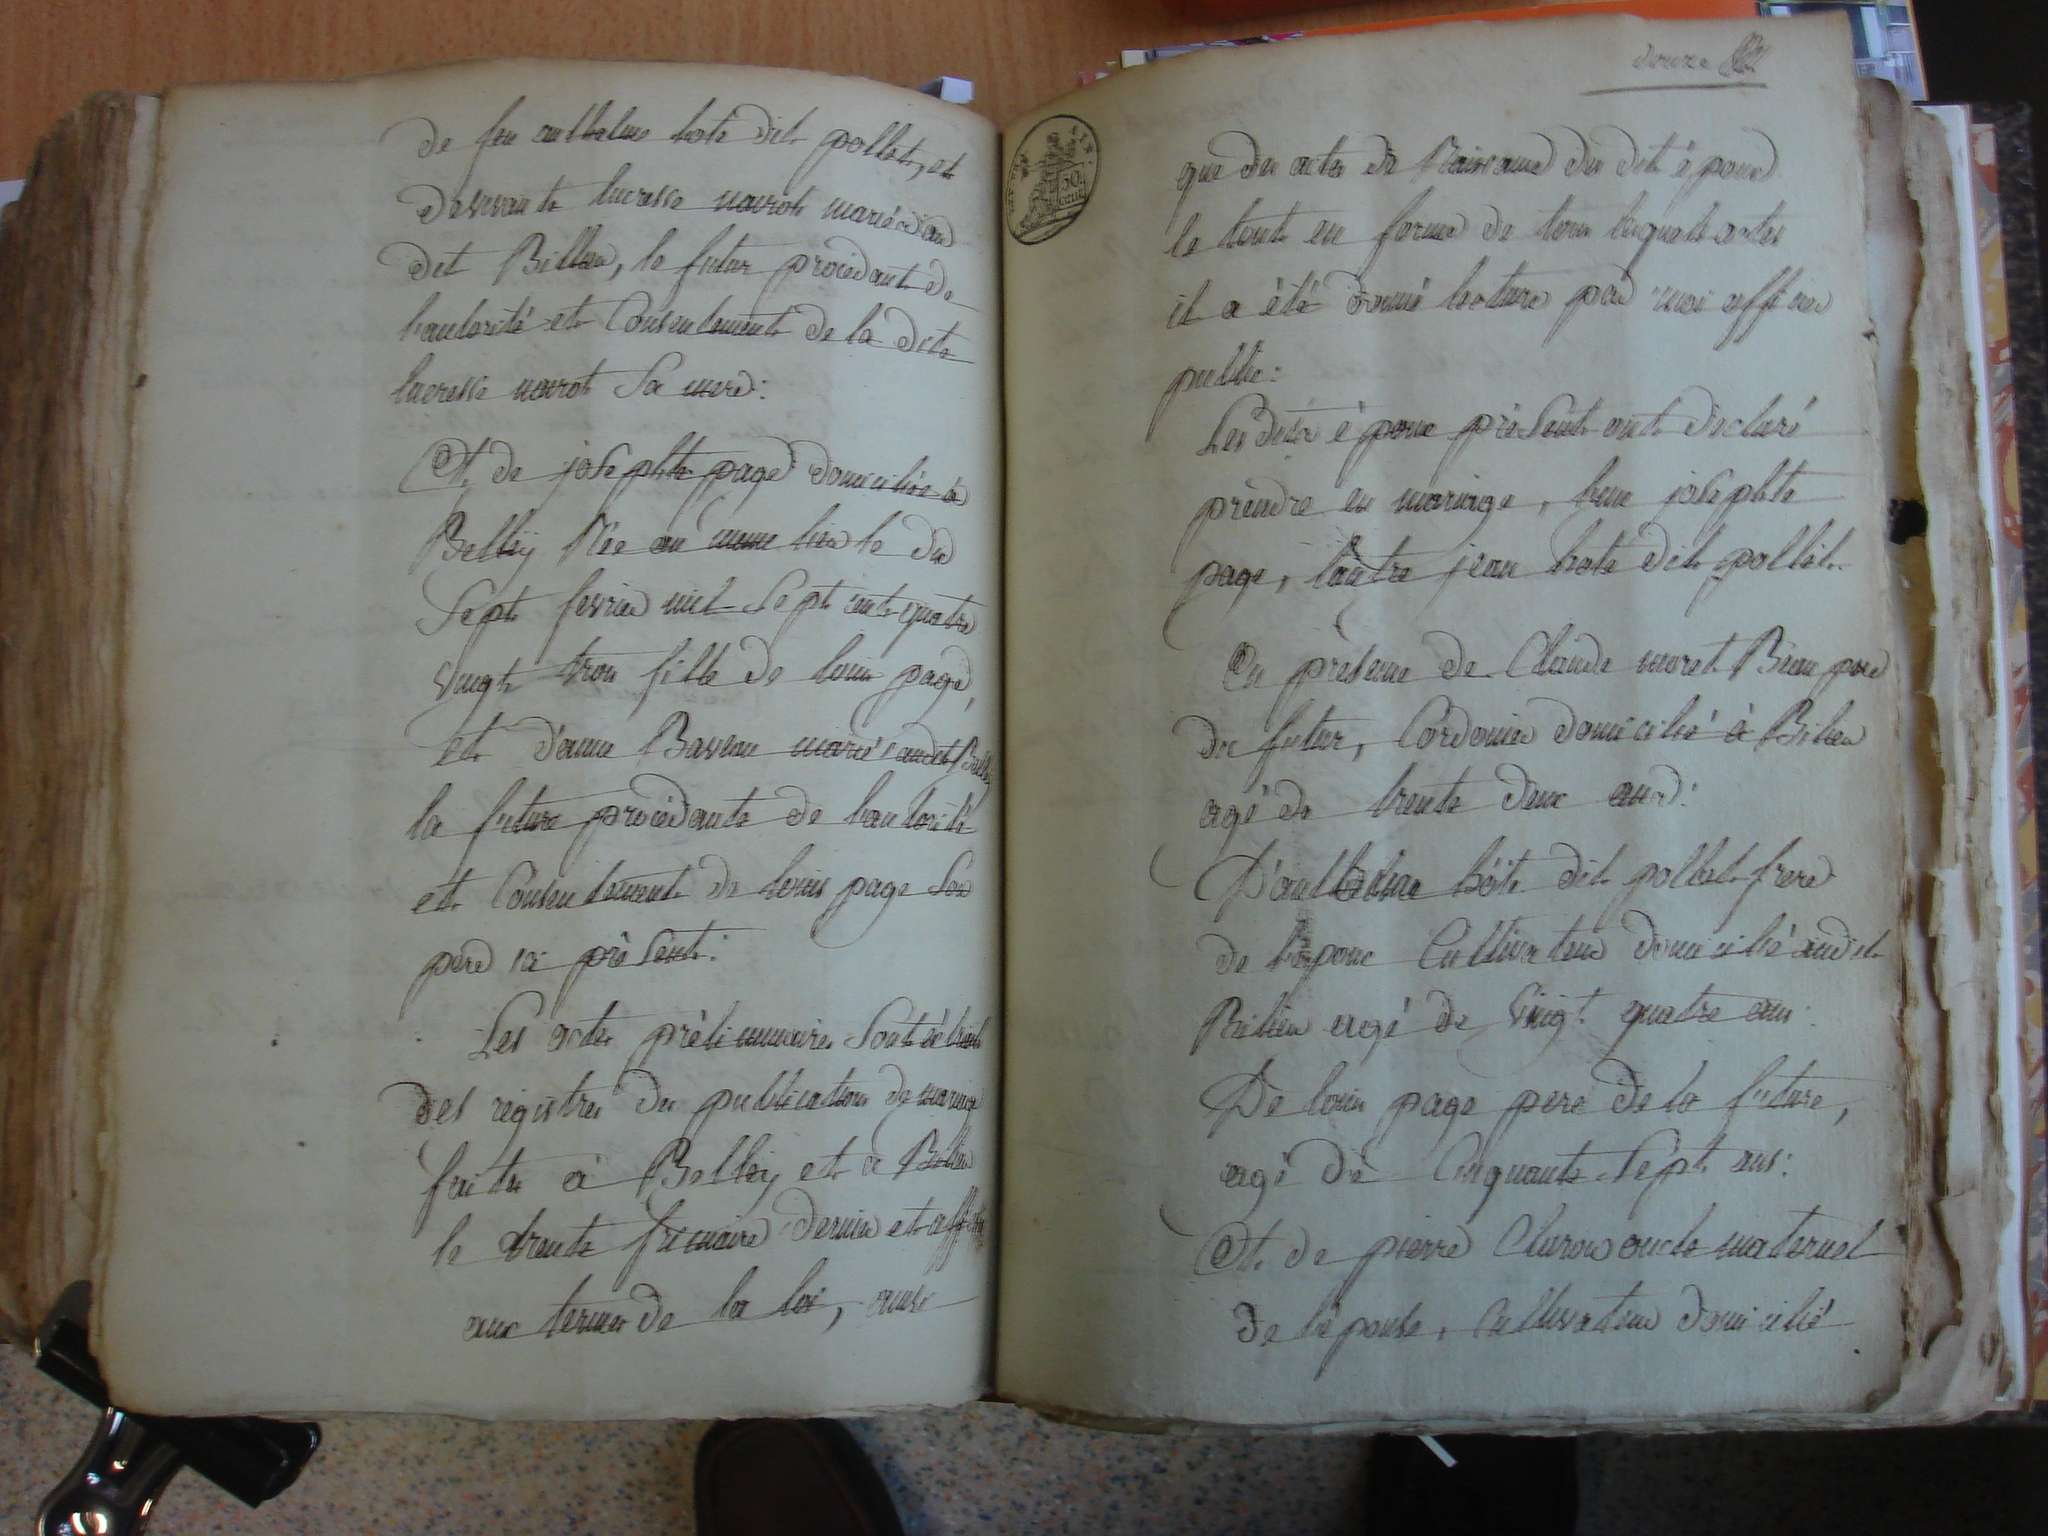 de feu anthelme hote dit pollet, et
de vivante lucresse noirot mariés au
dit Billieu, le futur procedant de
l'autorité et Consentement de la dite
lucresse noirot Sa mere:
Et de josephte page domiciliée à
Belleÿ Née au meme lieu le dix
Sept fevrier mil Sept cent quatre
vingt trois fille de louis page,
et d'anne mariés audit Belley
la future procedante de l'autorité
et Consentement de louis page Son
pere ici présent:
Les actes préliminaires Sont éxtraits
des registres des publications de mariage
faites à Belleÿ et à Billieu
le trente frimaire dernier et affiché
aux termes de la loi, ainsi
douze
50
que des actes de Naissance des dits époux
le tout en forme de tous lesquels actes
il a été donné lecture par moi officier
public:
Les dits époux présents ont déclaré
prendre en mariage, l'une josephte
page, l'autre jean hote dit pollet.
En présence de Claude moret Beau pere
du futur, Cordonier domicilié à Bilieu
agé de trente deux ans:
D'anthelme hôte dit pollet frere
de l'époux Cultivateur domicilié audit
Bilieu agé de vingt quatre ans:
De louis page pere de la future,
agé de Cinquante Sept ans:
Et de pierre oncle maternel
de l'épouse, Cultivateur domicilié